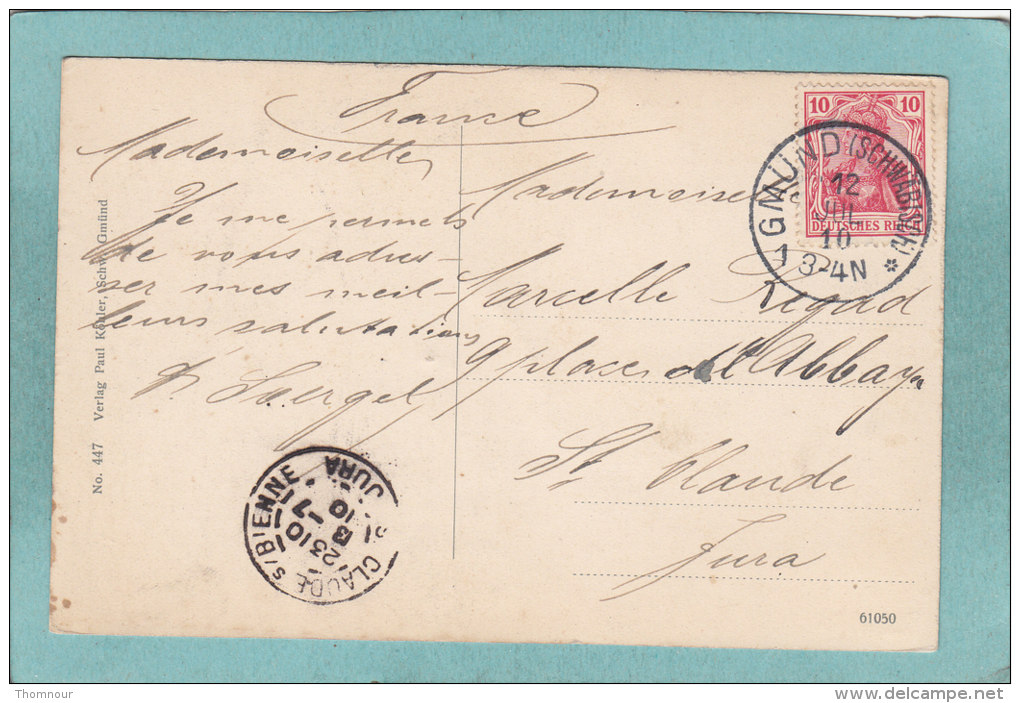 France
Mademoiselle,
Je me permets
de vous adres-
ser mes meil-
leurs salutations
Mademoiselle
Marcelle Regad
9 place de l'Abbaye
St Claude
Jura
10 10
DEUTSCHES REICH
GMÜND (SCHWÄBISCH)
12
JUL
10
3-4N
1 *
CLAUDE S/BIENNE
JURA
2310
13 -7
10
No. 447 Verlag Paul Köhler, Schw. Gmünd
61050
Thomnour
www.delcampe.net